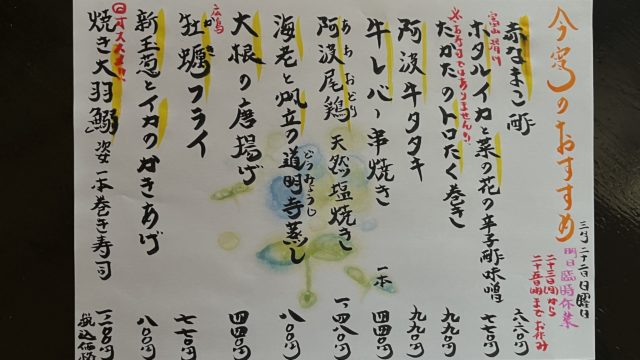 今宵のおすすめ
三月二十二日 日曜日
明日臨時休業
二十三日(月)から
二十五日(水)までお休み
赤なまこ酢 六六〇円
富山 滑川
ホタルイカと菜の花の辛子酢味噌 七七〇円
※お寿司ではありません!!
たかたのトロたく巻き 九九〇円
阿波牛タタキ 九九〇円
牛レバー串焼き 一本 四四〇円
あわおどり
阿波尾鶏 天然塩焼き 一、四八〇円
どうみょうじ
海老と帆立の道明寺蒸し 八八〇円
大根の唐揚げ 四四〇円
広島
かき
牡蠣フライ 七七〇円
新玉葱とイカのかきあげ 八八〇円
オススメ!!
焼き大羽鰯 姿 一本巻き寿司 一、一〇〇円
税込価格